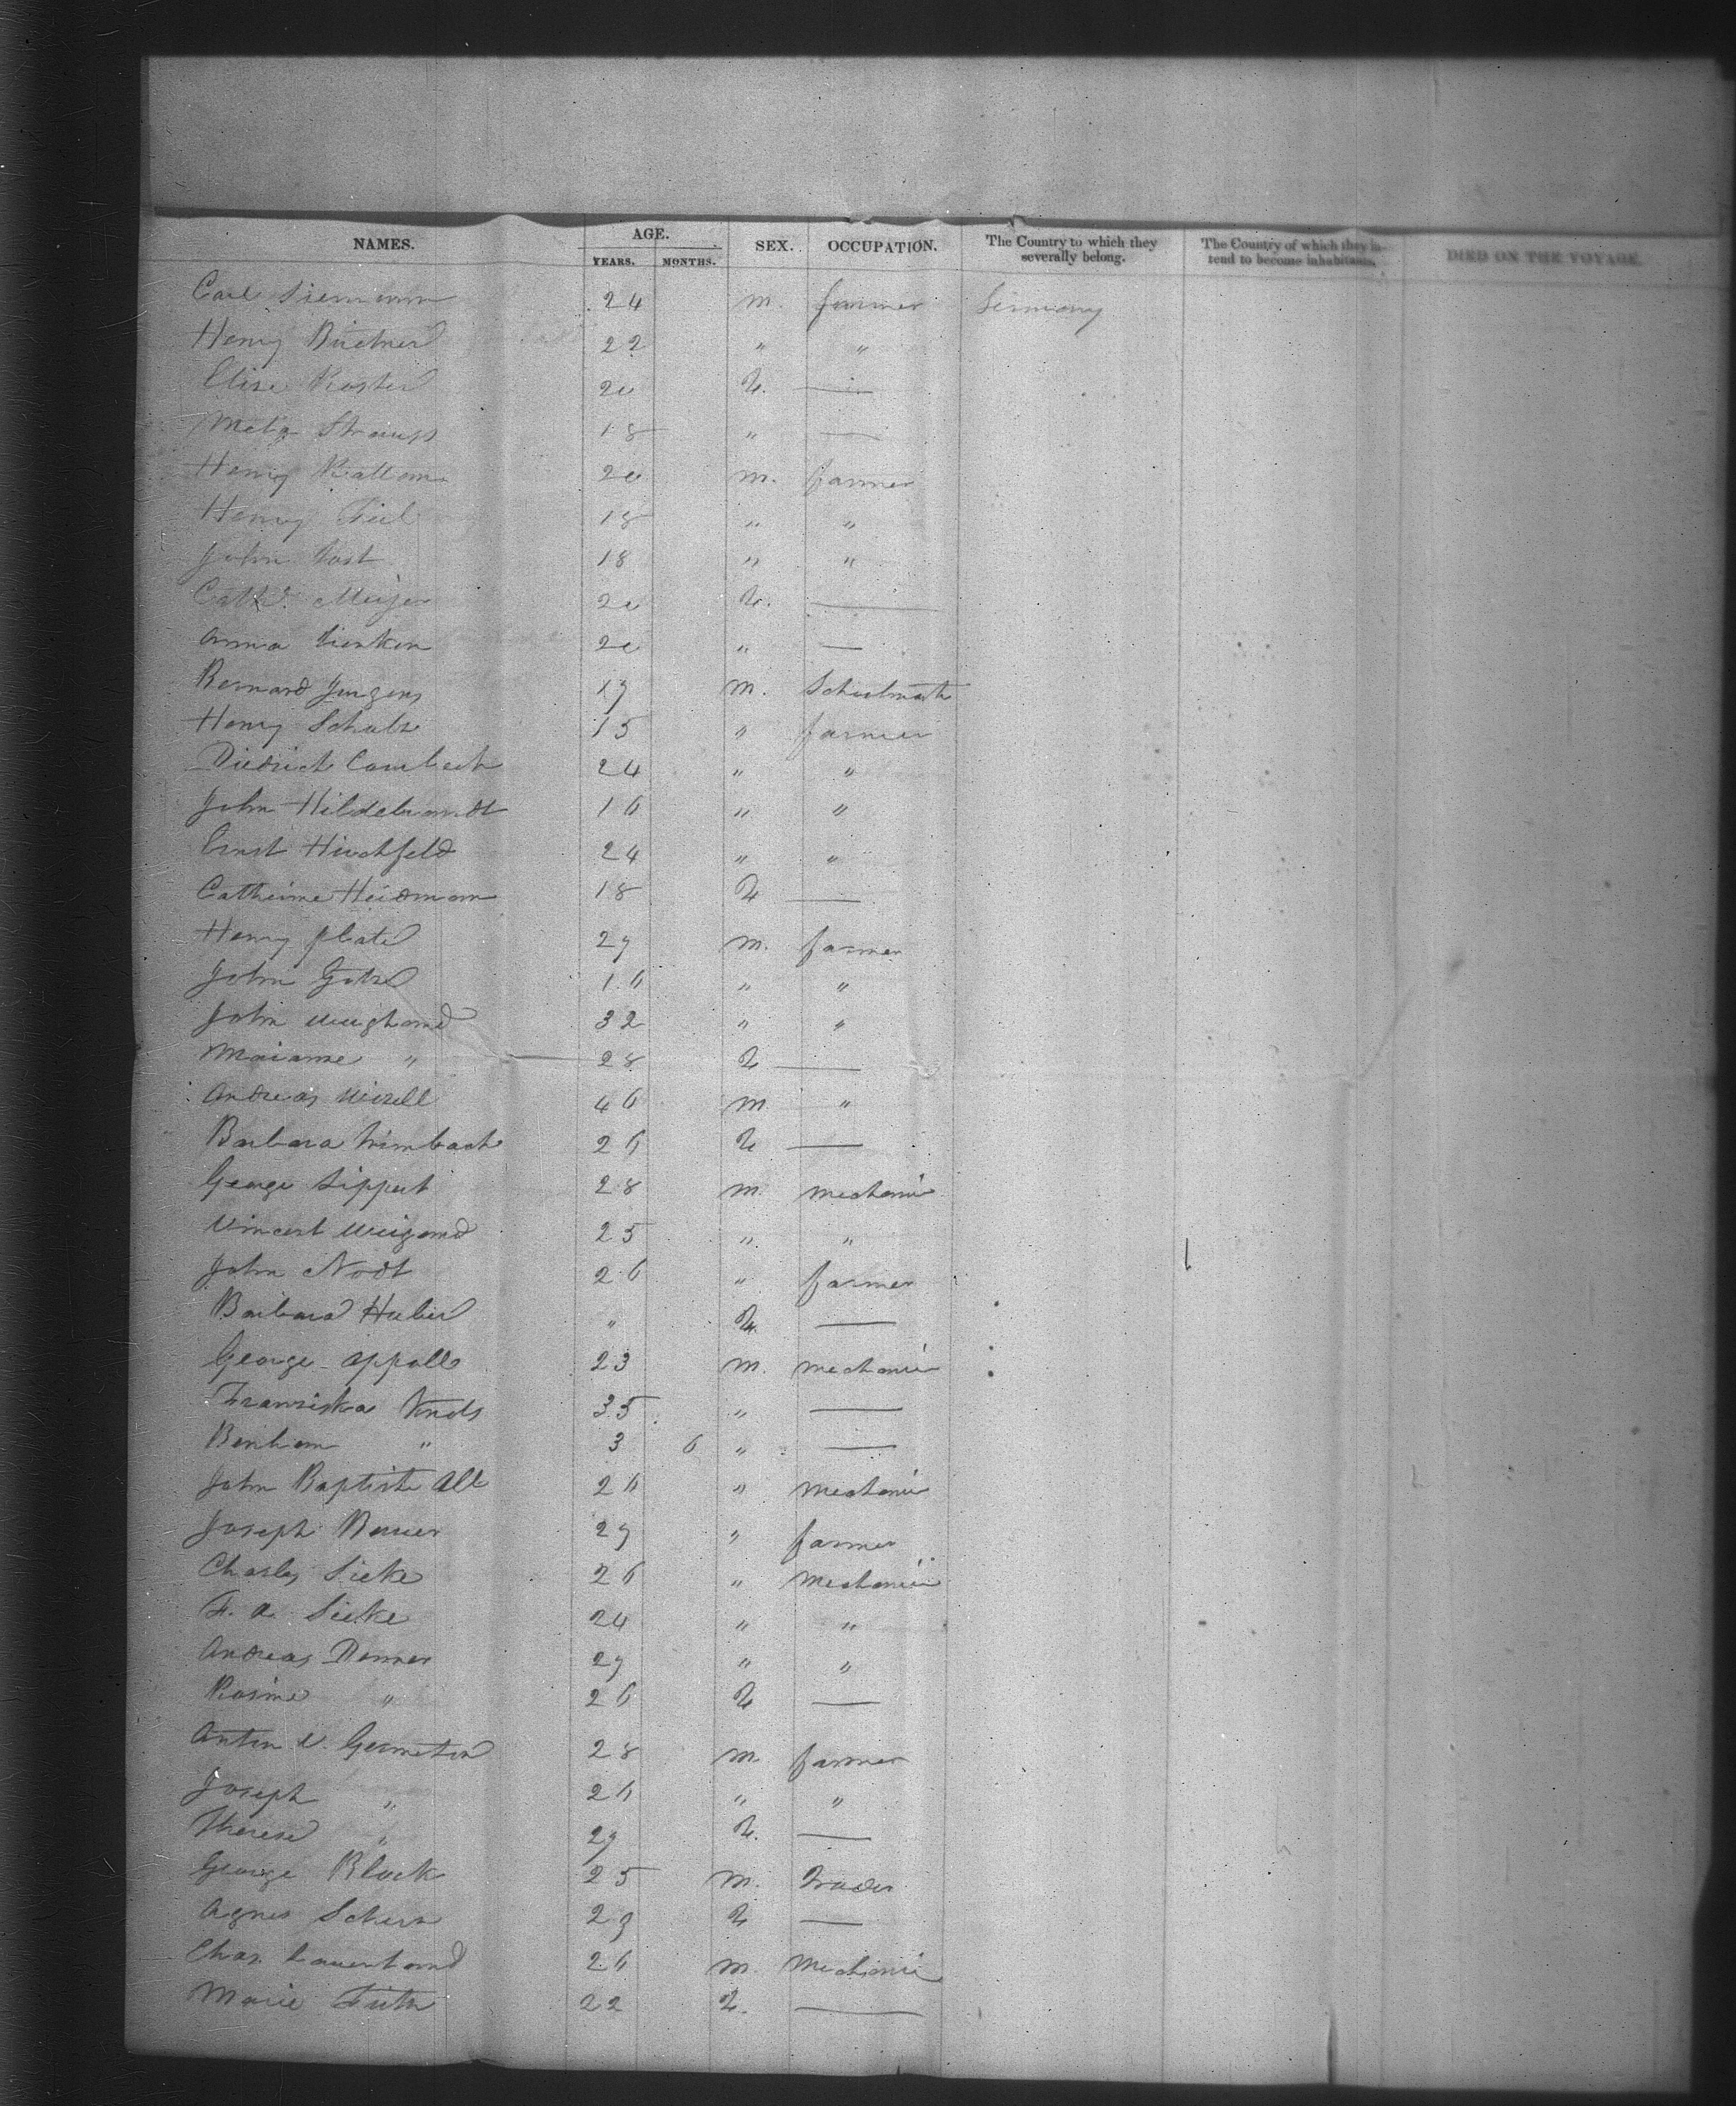 NAMES. AGE. YEARS. MONTHS. SEX. OCCUPATION. The Country to which they severally belong. The Country of which they intend to become inhabitants. DIED ON THE VOYAGE.
Carl Siemann 24 m. farmer Germany
Henry Buttner 22 " "
Elise Koster 20 f. —
Meta Strauss 18 " —
Henry 20 m. farmer
Henry 18 " "
John 18 " "
Cath. Meijer 20 f. —
Anna Lienken 20 " —
Bernard Jurgens 17 m. Schoolmast
Henry Schult 15 " farmer
Diedrich 24 " "
John Hildebrandt 16 " "
Ernst Hirchfeld 24 " "
Catherine Heidmann 18 f —
Henry Plate 27 m. farmer
John Gotze 16 " "
John Weighand 32 " "
Marianne " 28 f —
Andreas 46 m "
Barbara 26 f —
George Lippert 28 m. mechanic
Vincent Weigand 25 " "
John Nodt 26 " farmer
Barbara Huber " f. —
George Appell 23 m. mechanic
Franziska 35 " —
" 3 6 " —
John Baptiste Alt 26 " mechanic
Joseph Bauer 27 " farmer
Charles Sieke 26 " mechanic
F. A. Sieke 24 " "
Andreas Donner 27 " "
Rosine " 26 f —
Anton v. 28 m. farmer
Joseph " 26 " "
Therese " 27 f. —
George Block 25 m. Trader
Agnes 23 f —
Chas. 26 m. mechanic
Marie 22 f. —